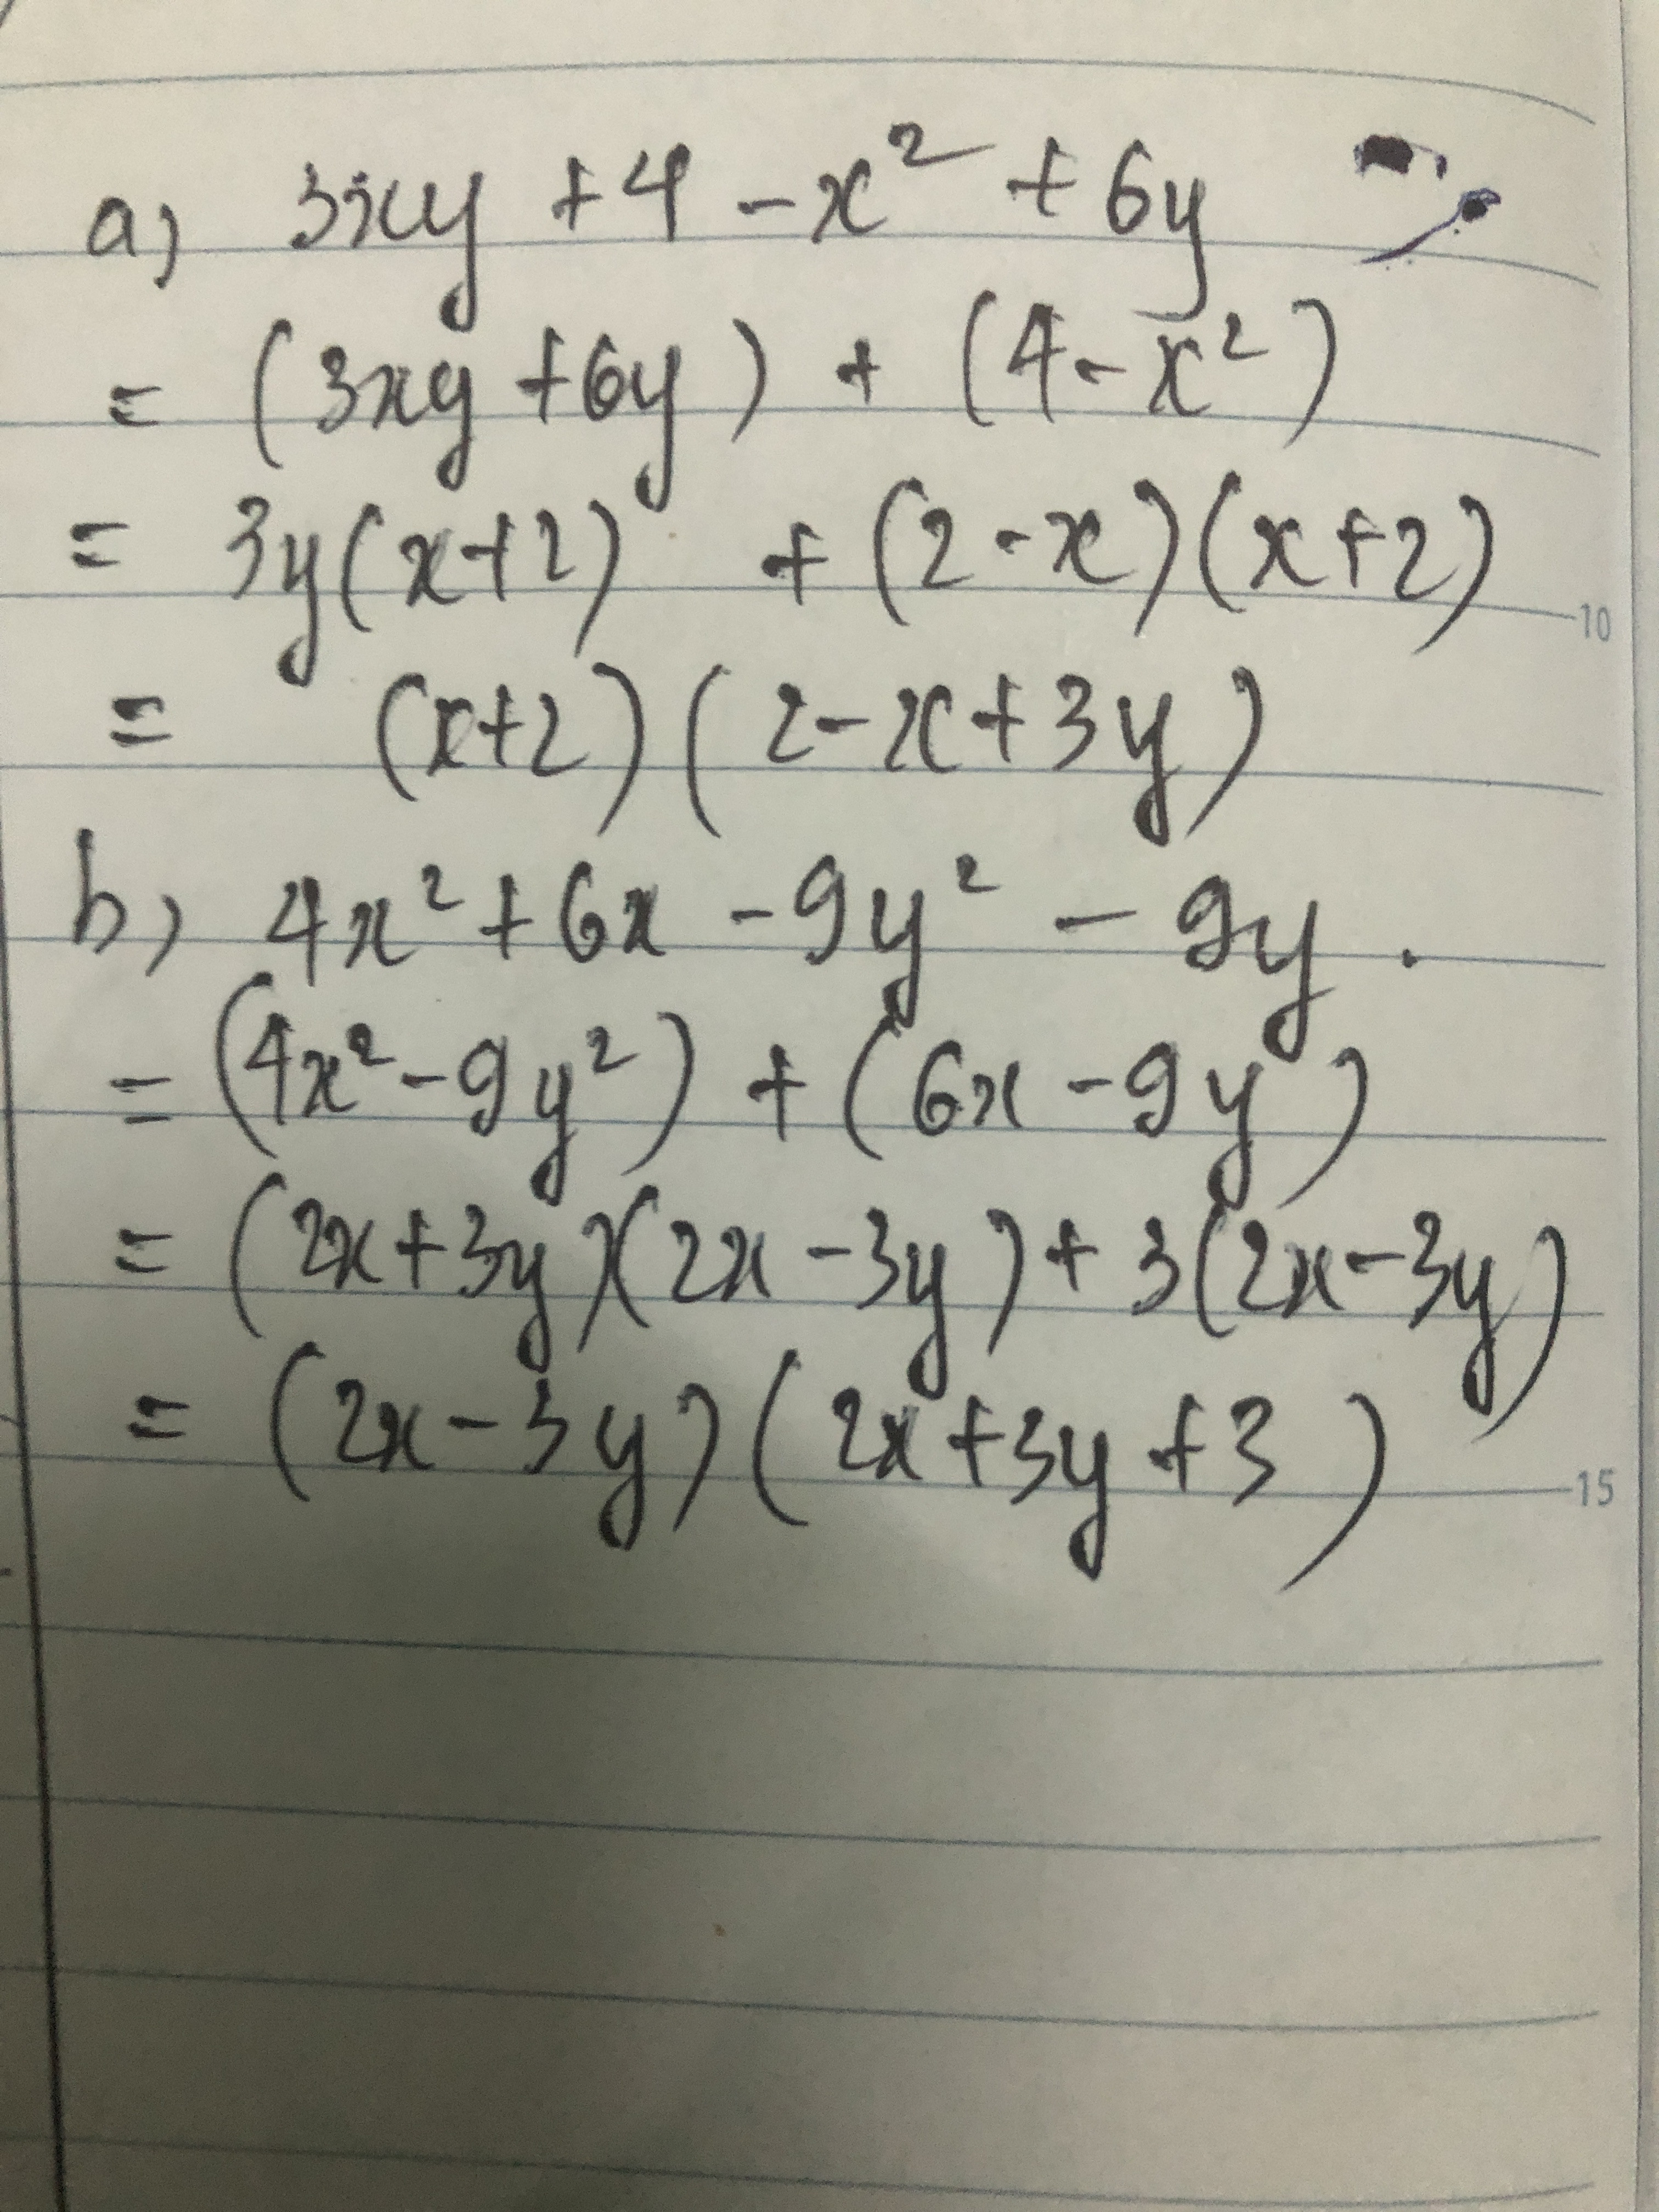 a) 3xy + 4 - x² + 6y
= (3xy + 6y) + (4 - x²)
= 3y(x+2) + (2 - x)(x+2)
10
= (x+2)(2 - x + 3y)
b) 4x² + 6x - 9y² - 9y.
= (4x² - 9y²) + (6x - 9y)
= (2x + 3y)(2x - 3y) + 3(2x - 3y)
= (2x - 3y)(2x + 3y + 3)
15